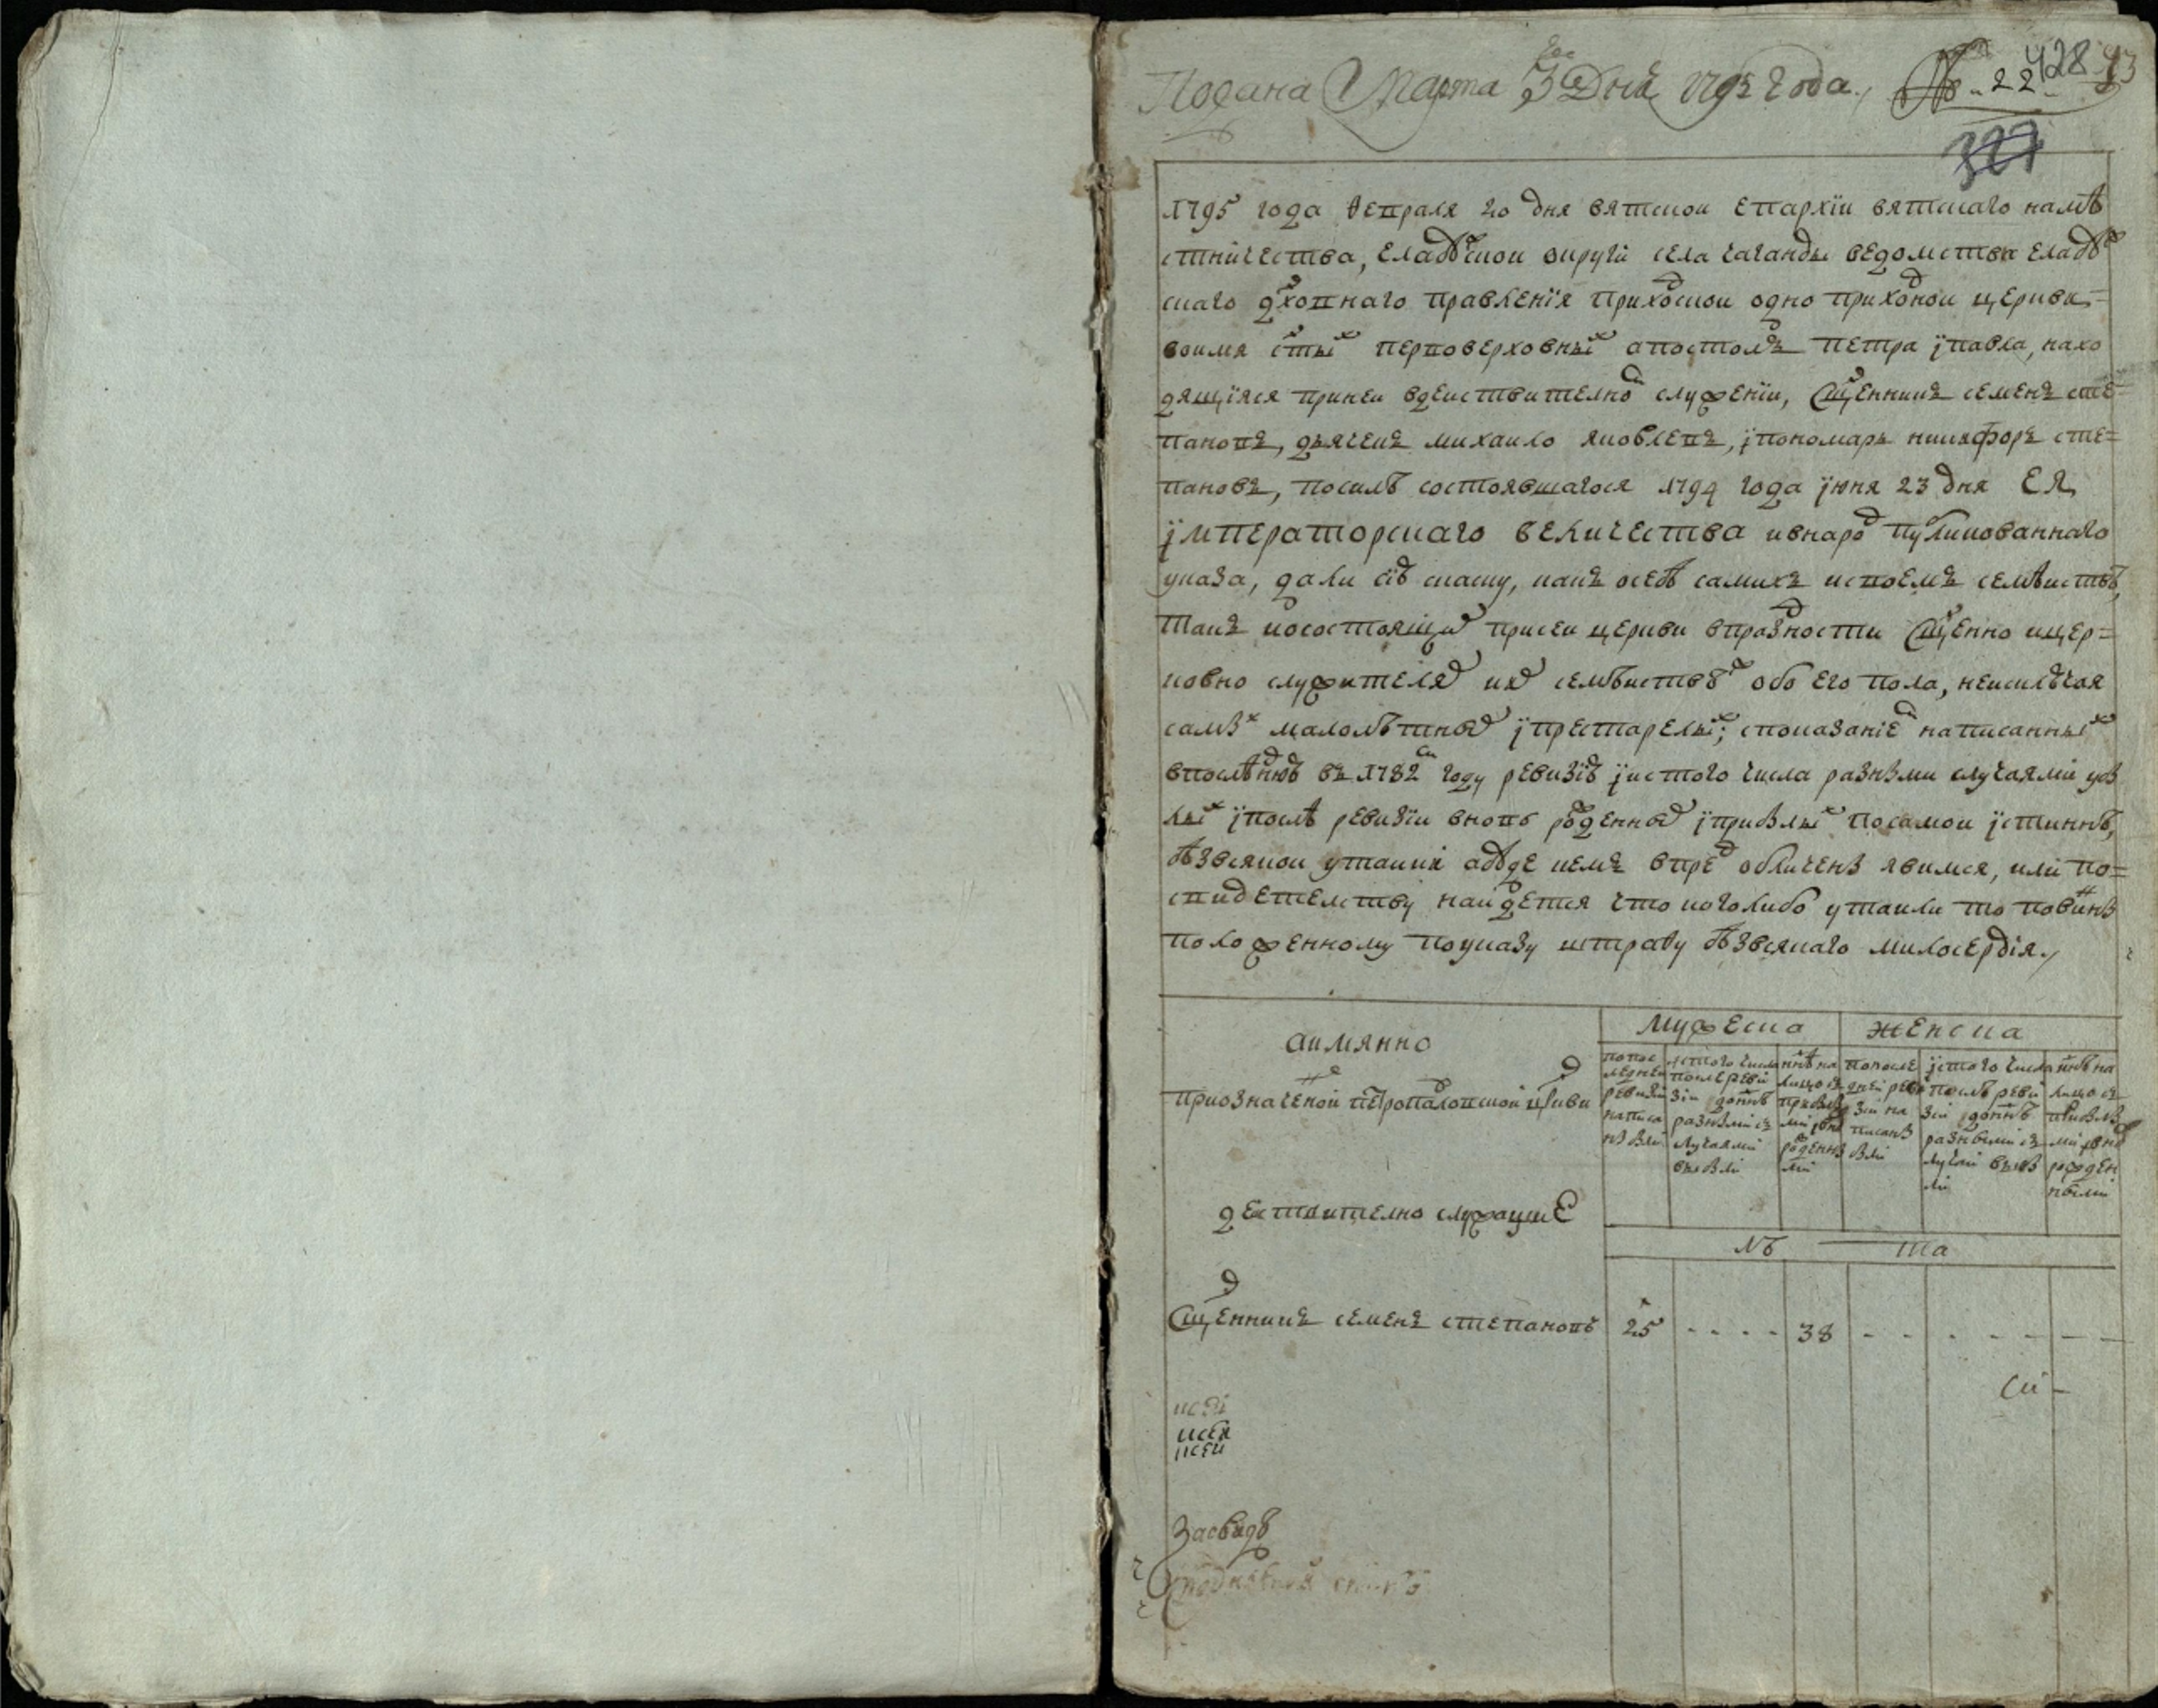 Подана Марта 3го Дня 1795 года № 22 428 93
327
1795 года февраля 20 дня вятской епархїи вятскаго намѣ
стничества, елабꙋской округи села чаганды ведомства елабꙋ
скаго дховнаго правленїя приходской одно приходной церкви
воимя стых первоверховных апостолъ петра ї павла, нахо
дящїяся приней вдействително служенїи, Сщенникъ семенъ сте
пановъ, дьячекъ михаило яковлевъ, ї пономарь никифоръ сте=
пановъ, посилѣ состоявшагося 1794 года їюня 23 дня ЕЯ
їмператорскаго величества ивнарод публикованнаго
указа, дали сїю скаску, какъ осебѣ самихъ исвоемъ семѣйствѣ,
такъ иосостоящих присеи церкви впраздности Сщенно ицер=
ковно служителях иих семѣйствѣ обоего пола, неисключая
самых малолѣтных ї престарелых; споказаниемъ написанных
впослѣднюю въ 1782м году ревизїю ї истого числа разными случаями убы
лых ї послѣ ревизїи вновь рожденных ї прибылых посамой їстиннѣ,
безвсякой утайки абуде чемъ впред обличены явимся, или по=
свидетелству найдется что коголибо утаили то повинны
положенному поуказу штрафу безвсякаго милосердїя
аимянно
приозначеной петропавловской цркви
действително служащие
мужеска
женска
попос
ледней
ревизїи
написа
ны были
истого числа
послеревї
зїи донынѣ
разными
случаями
выбыли
нынѣ на
лицо съ
прибылы
ми ї вно
рожденны
ми
попосле
дней реви
зїи на
писаны
были
їстого числа
послѣ реви
зїи донынѣ
разными
случаи выбы
ли
нынѣ на
лицо съ
прибылы
ми ї вно
рожден
ными
лѣ та
Сщенникъ семенъ степановъ 25 - - - - 38 - - - - - - -
Си -
исей
исей
исей
Засвидѣ